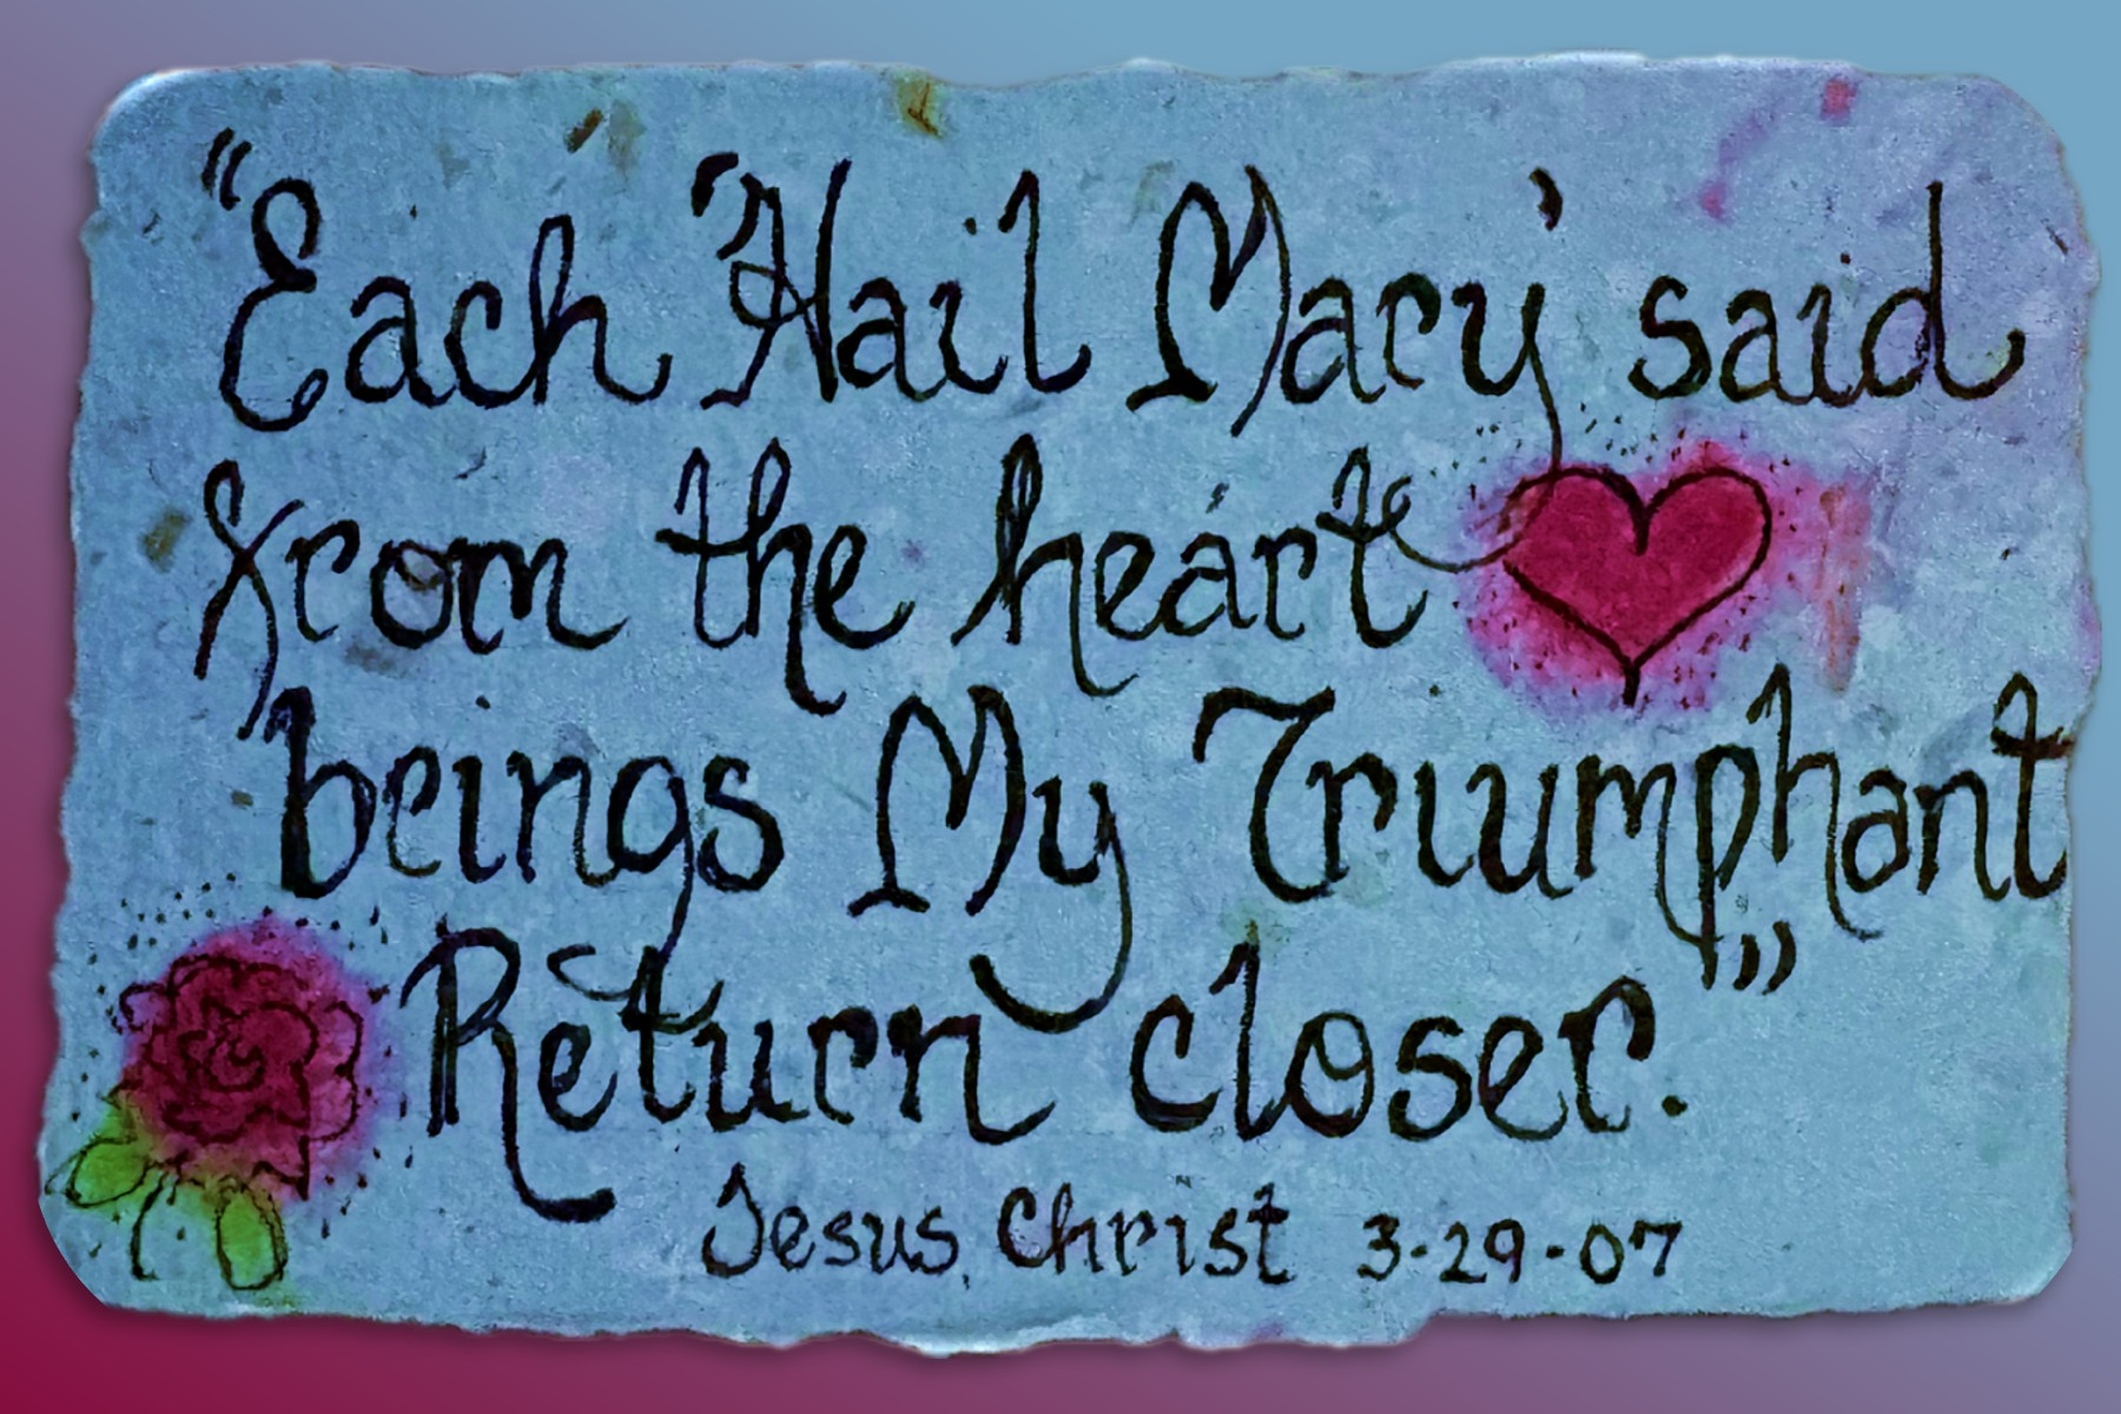 “Each ‘Hail Mary’ said
from the heart
beings My Triumphant
Return closer.”
Jesus Christ 3-29-07